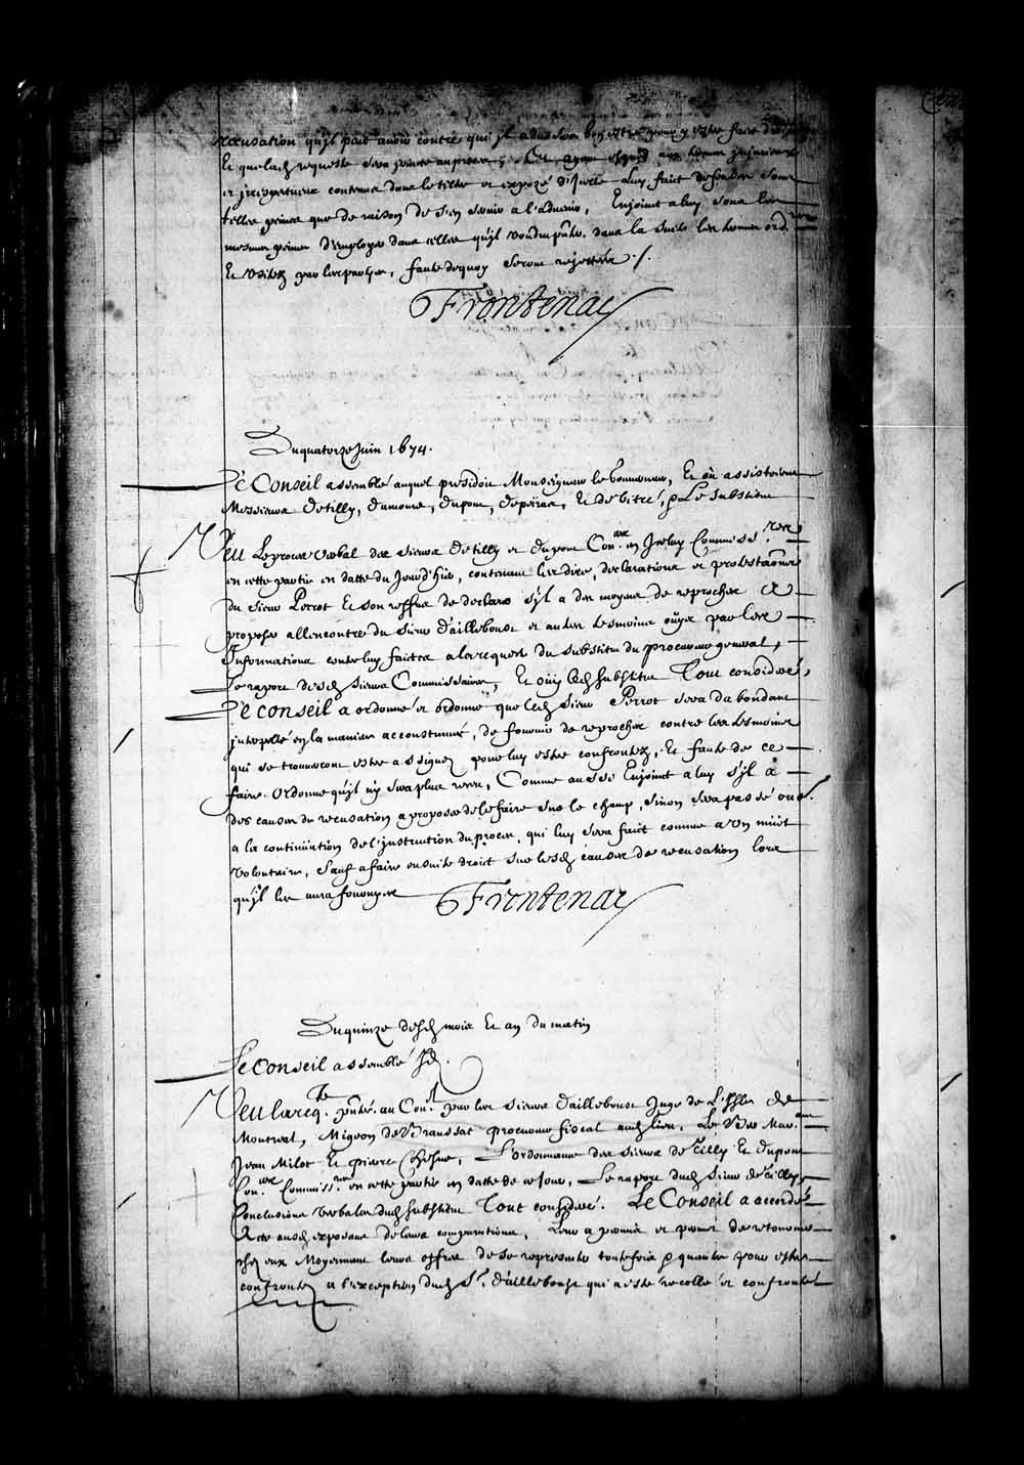 recusation qu'jl peut avoir contre qui jl advisera bon estre pour y estre faict droict
Et que lad requeste sera jointe au procez
et jrreverentieux contenus dans le tiltre et exposé d'jcelle luy faict deffenses soubs
telles peines que de raison de s'en servir a l'advenir, Enjoinct a luy soubs les
mesmes peines d'employer dans celles qu'jl voudra pnter dans la suite les termes ord.
Et usitez par les parties, faute dequoy seront rejettées ./.
Frontenac
Du quatorze Juin 1674.
Le Conseil assemblé auquel presidoit Monseigneur le Gouverneur, Et où assistoient
Messieurs Detilly, Damours, Dupont, Depeiras, Et de Vitré, pnt le substitut
Veu Le procez verbal des sieurs Detilly et Dupont Coners en jceluy Commissres
en cette partie en datte du Jourd'hier, contenant les dire, declarations et protestaons
du sieur Perrot Et son reffus de declarer s'jl a des moyens de reproches a
proposer allencontre du sieur d'ailleboust et autres tesmoins ouys par les
Informations contre luy faictes a la requeste du substitut du procureur general,
Le raport desd sieurs Commissaires, Et ouy led substitut Tout consideré,
Le Conseil a ordonné et ordonne que led sieur Perrot sera dabondant
jnterpellé en la maniere accoustumée, de fournir de reproches contre les tesmoins
qui se trouveront estre assignez pour luy estre confrontez, Et faute de ce
faire. ordonne qu'jl n'y sera plus receu, Comme aussi Enjoinct a luy s'jl a
des causes de recusation a proposer de le faire sur le champ, sinon sera passé outre
a la continüation de l'jnstruction du procez, qui luy sera faict comme a un müet
volontaire, sauf a faire ensuite droict sur lesd causes de recusation lors
qu'jl les aura fournyes
Frontenac
Du quinze desd mois Et an du matin
Le Conseil assemblé Jd.
Veu la reqte pnteé au Conel par les sieurs d'ailleboust Juge de L'jsle de
Montreal, Migeon de Branssat procureur fiscal aud lieu,
Jean Milot Et pierre Chesne, L'ordonnance des sieurs de Tilly Et dupont
Coners Commissres en cette partie en datte de ce jour, Le raport dud sieur de Tilly,
Conclusions verbales dud substitut Tout consideré. Le Conseil a accordé
Acte ausd exposans de leurs comparutions, Leur a permis et permet de retourner
chez eux Moyennant leurs offres de se representer toutefois et quantes pour estre
confrontez a l'exception dud Sr. d'ailleboust qui a esté recollé et confronté